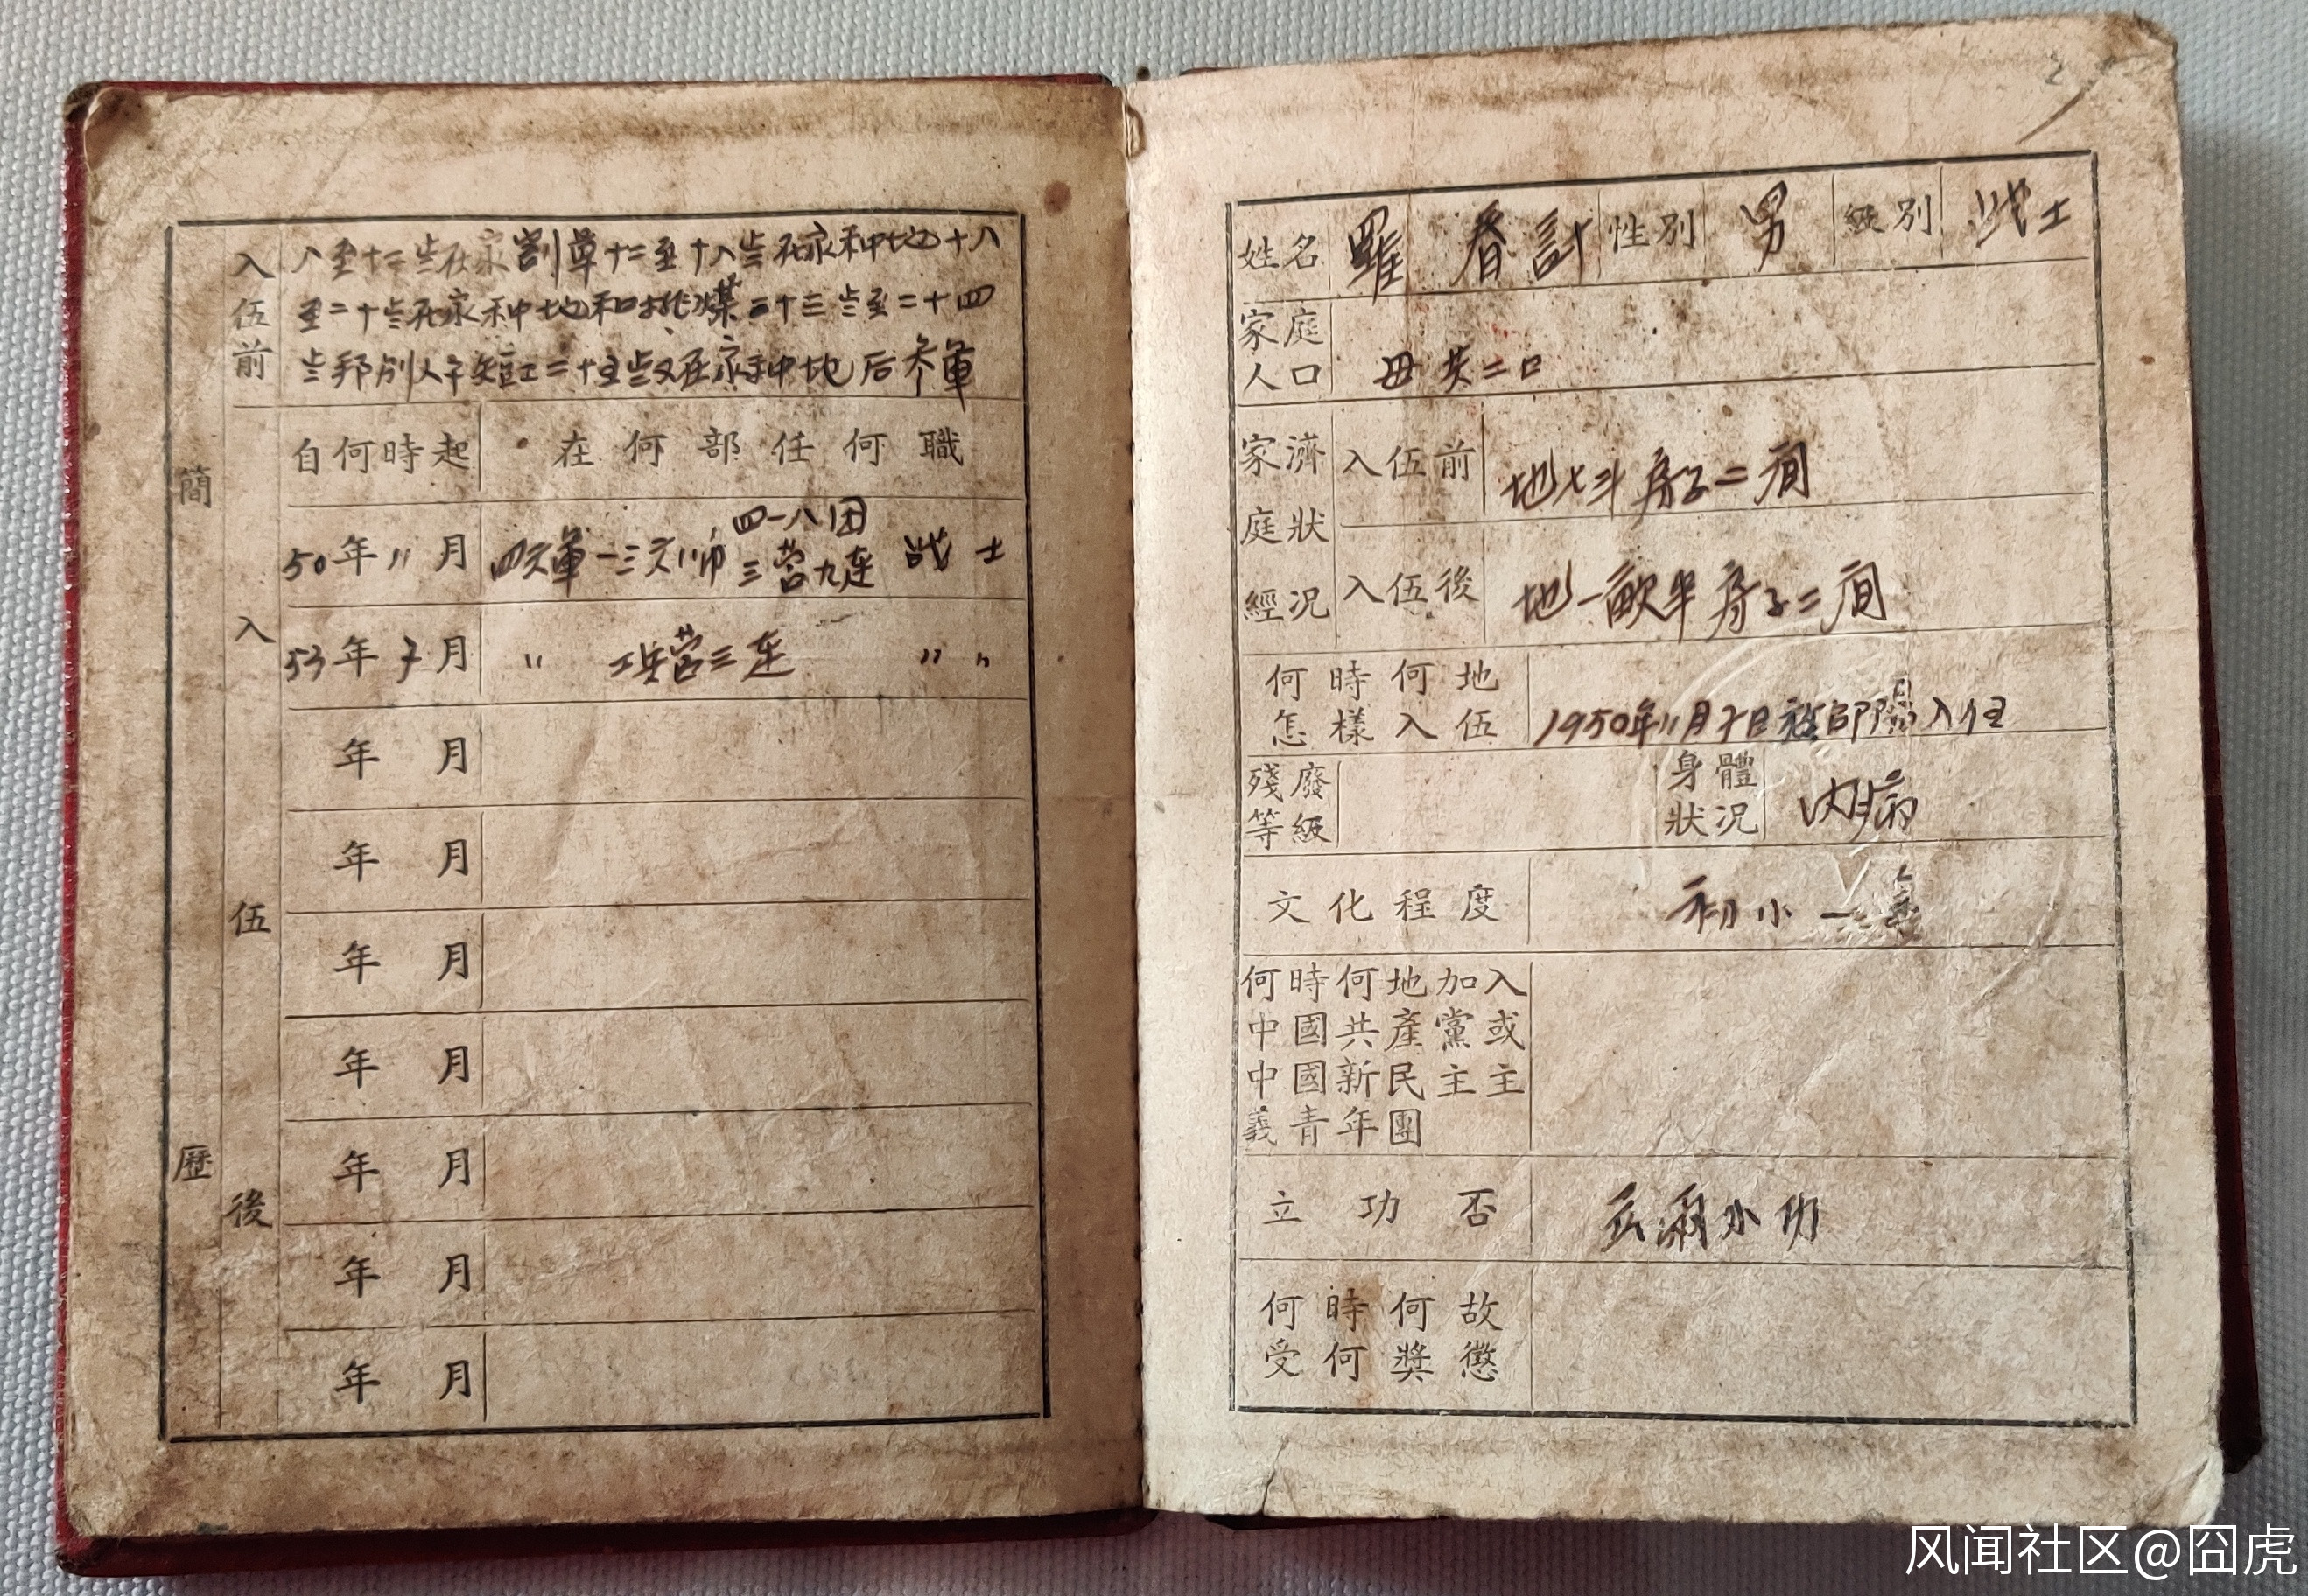 簡歷
入伍前
八至十二岁在家割草十二至十八岁在家种地十八
至二十岁在家种地和挑煤二十三岁至二十四
岁邦别人干短工二十五岁又在家种地后参軍
入伍後
自何時起 在何部任何職
50年11月 四六軍一三六师 四一八团 三营九连 战士
53年7月 〃 工兵营三连 〃 〃
年 月
年 月
年 月
年 月
年 月
年 月
年 月
2
姓名 羅春計 性别 男 級别 战士
家庭人口 母 共二口
家庭經濟狀況
入伍前 地七斗房子二间
入伍後 地一畝半房子二间
何時何地怎樣入伍 1950年11月7日 入伍
殘廢等級
身體狀況 内病
文化程度 初小一年
何時何地加入
中國共產黨或
中國新民主主
義青年團
立功否 立 小功
何時何故
受何獎懲
风闻社区@囧虎